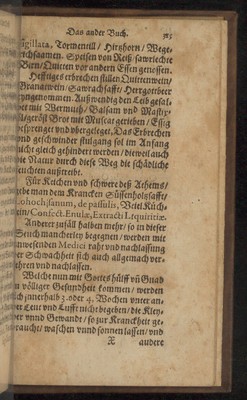 Das ander Buch.
sigillata, Tormentill / Hirtzhorn / Wege-
richsaamen. Speisen von Reiß / sawrlechte
Birn / Quitten vor andern Essen genossen.
Hefftiges erbrechen stillen Quittenwein /
Granatwein / Sawrachsafft / Herrgottbeer
eyngenommen. Außwendig den Leib gesal-
bet mit Wermuth / Balsam vnd Mastix-
öl / geröst Brot mit Muscat gerieben / Essig
besprenget vnd vbergeleget. Das Erbrechen
vnd geschwinder stulgang sol im Anfang
nicht gleich gehindert werden / dieweil auch
die Natur durch diese Weg die schädliche
feuchten außtreibt.
Für Keichen vnd schwere deß Athems /
gebe man dem Krancken Süssenholtzsafft /
Lohoch sanum, de passulis, Viel Küch-
lein / Confect. Enulæ, Extracti Liquiritiæ.
Anderer zufäll halben mehr / so in dieser
Seuch mancherley begegnen / werden mit
anwesenden Medici raht vnd nachlassung
der Schwachheit sich auch allgemach ver-
lehren vnd nachlassen.
Welche nun mit Gottes hülff vñ Gnad
in völliger Gesundheit kommen / werden
sich innerhalb 3. oder 4. Wochen vnter an-
der Leut vnd Lufft nicht begeben / die Kley-
der vnnd Gewandt / so zur Kranckheit ge-
braucht / waschen vnnd sonnen lassen / vnd
X andere